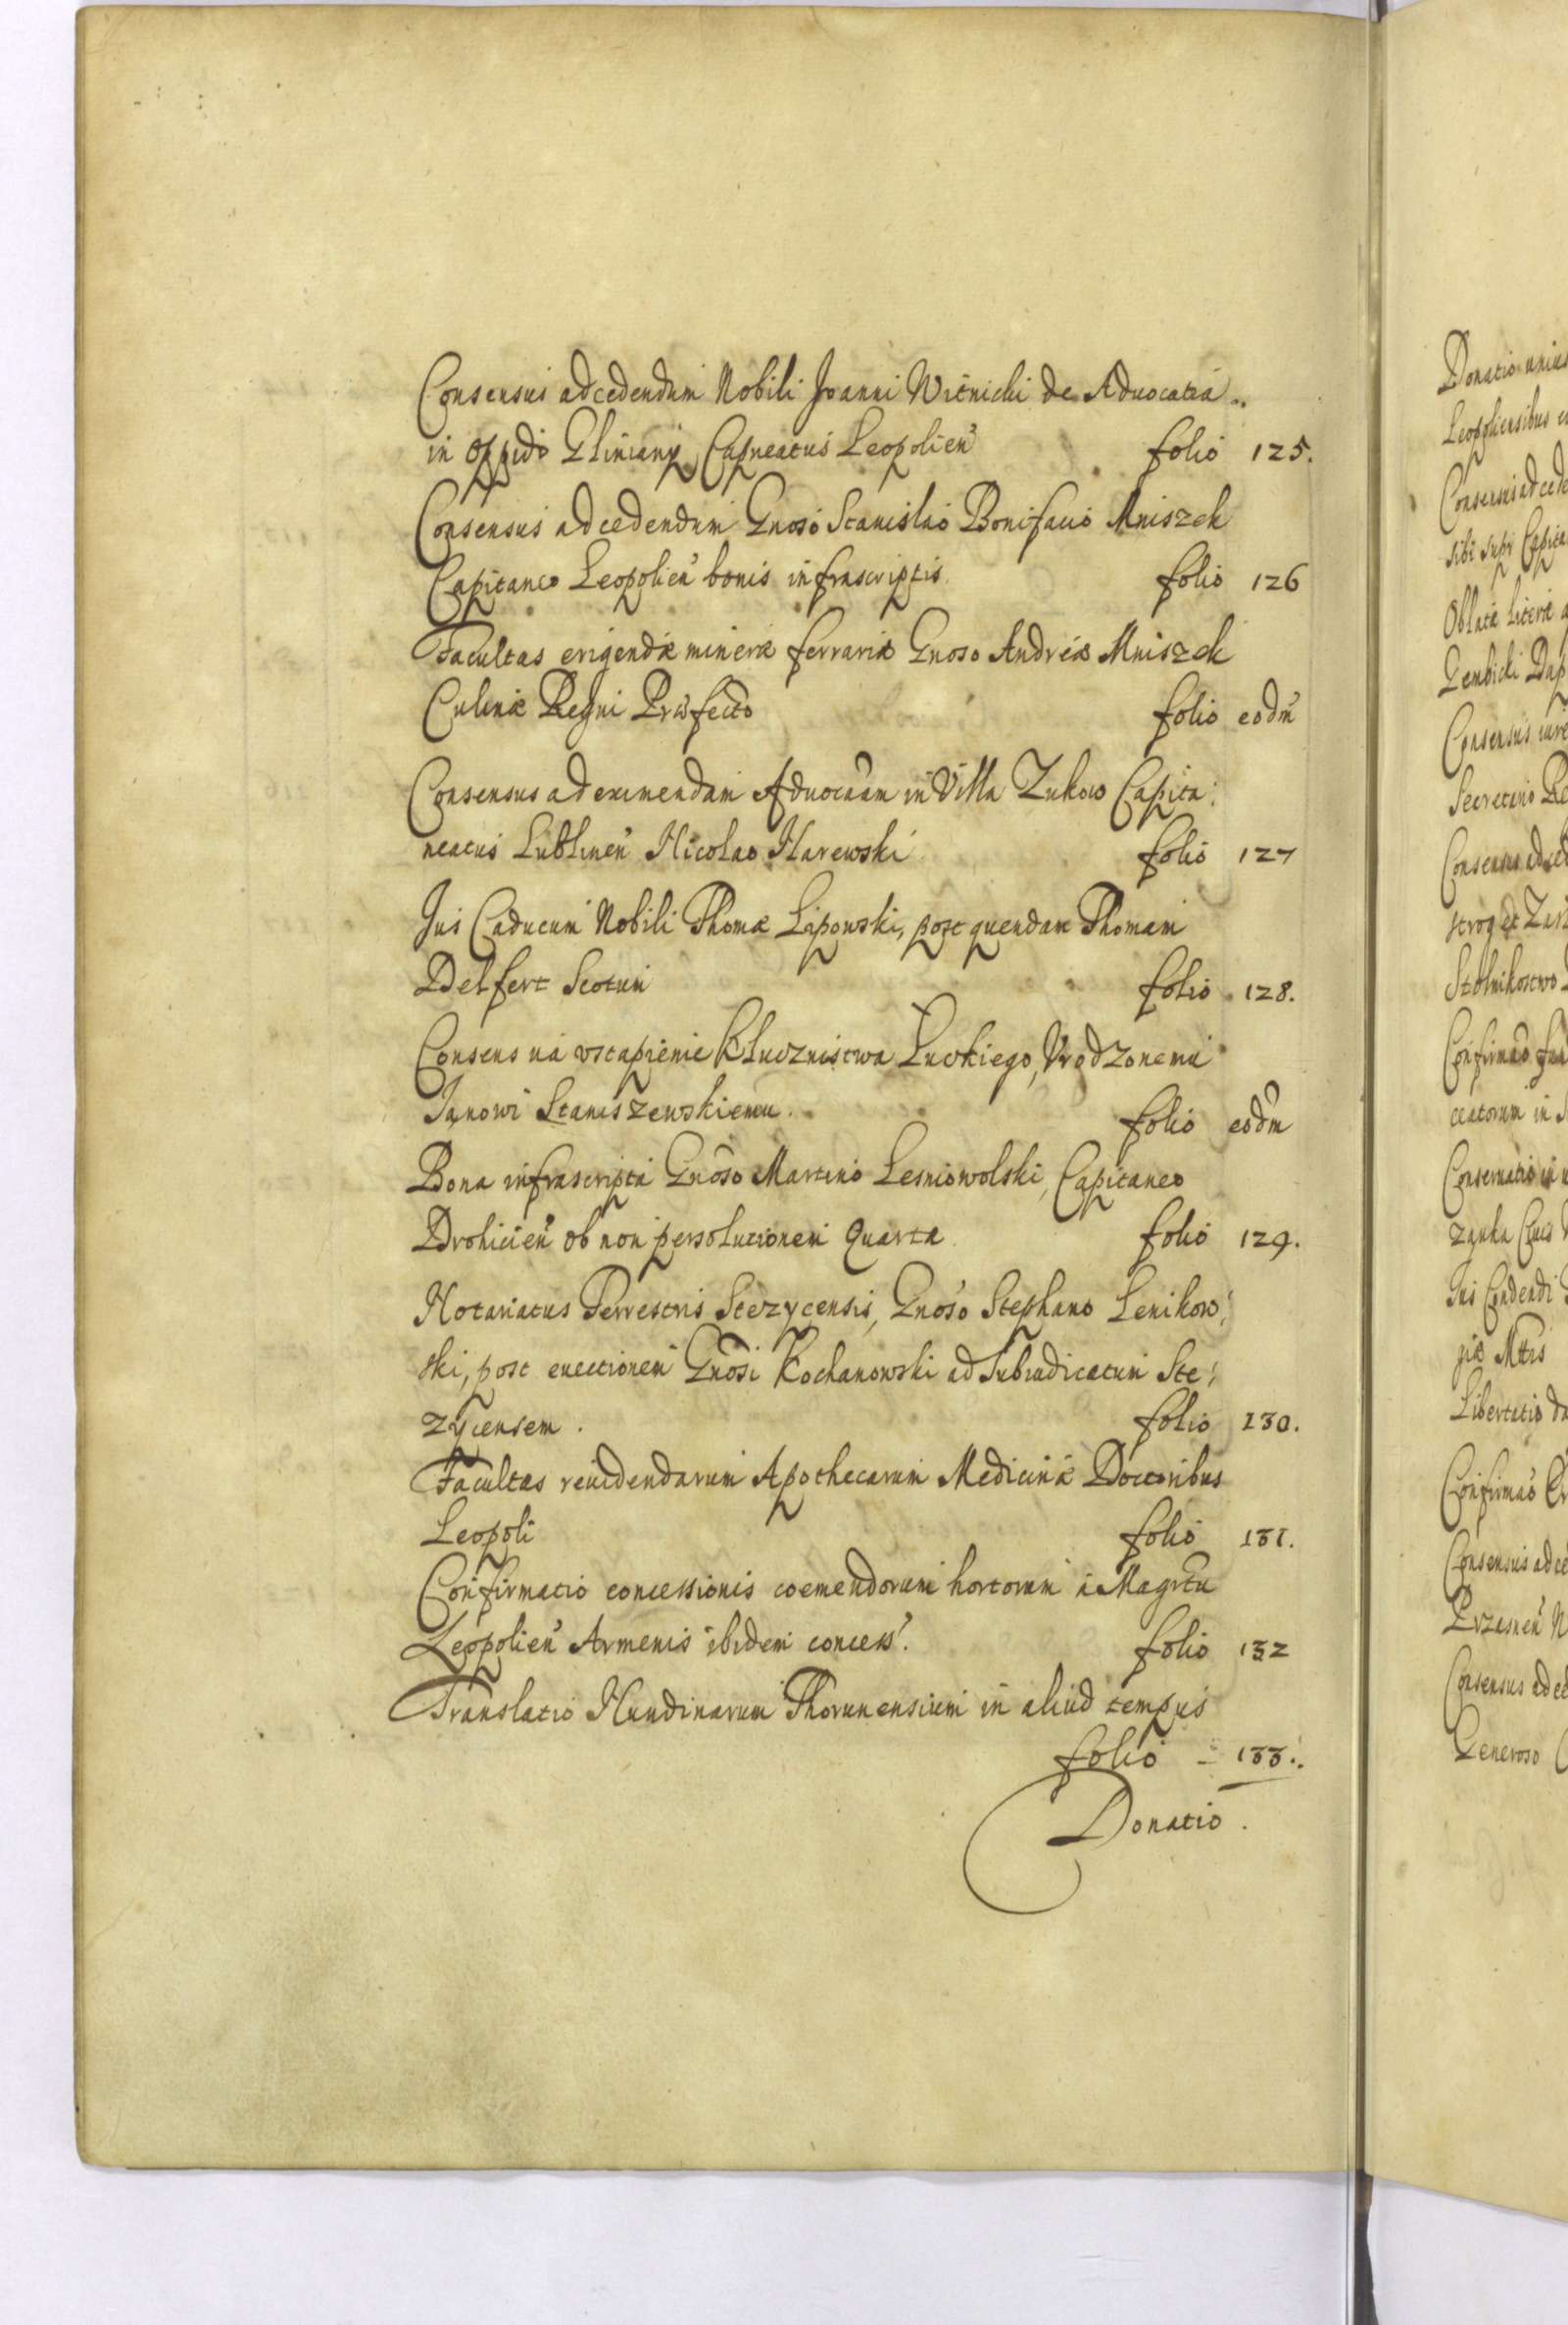 Consensus ad cedendum Nobili Joanni Witnicki de Aduocatia
in oppido Gliniany Capneatus Leopolien̄ folio 125.
Consensus ad cedendum Gnoso Stanislao Bonifacio Mniszek
Capitaneo Leopolien̄ bonis infrascriptis folio 126
Facultas erigendæ mineræ ferrariæ Gnoso Andreæ Mniszek
Culinæ Regni Præfecto folio eodm̄
Consensus ad eximendam Aduocãam in Villa Zukow Capita:
neatus Lublinen̄ Nicolao Narewski folio 127
Jus Caducum Nobili Thomæ Lipowski, post quendam Thomam
Delfert Scotum folio 128.
Consens na vstapienie Klucznistwa Łuckiego, Vrodzonemu
Janowi Staniszewskiemu. folio eodm̄
Bona infrascripta Gnõso Martino Lesniowolski, Capitaneo
Drohicien̄ ob non persolutionem Quartæ folio 129.
Notariatus Terrestris Stezycensis, Gnõso Stephano Lenikow:
ski, post euectionem Gnõsi Kochanowski ad Subiudicatum Ste:
zycensem. folio 130.
Facultas reuidendarum Apothecarum Medicinæ Doctoribus
Leopoli folio 131.
Confirmatio concessionis coemendorum hortorum a Magrtu
Leopolien̄ Armenis ibidem concess. folio 132
Translatio Nundinarum Thorunensium in aliud tempus
folio - 133.
Donatio.
Donatio unius
Leopoliensibus
Consensus ad cede
sibi supr Capita
Oblatæ literæ
Gembicki Dap
Consensus iure
Secretario Re
Consensus ad ced
Stolnikostwo
Confirmão
ceatorum in
Conseruatio in
Jus Condendi
giæ Mttis
Libertatio
Confirmão
Consensus ad ce
Przasnen̄ N
Consensus ad ce
Generoso